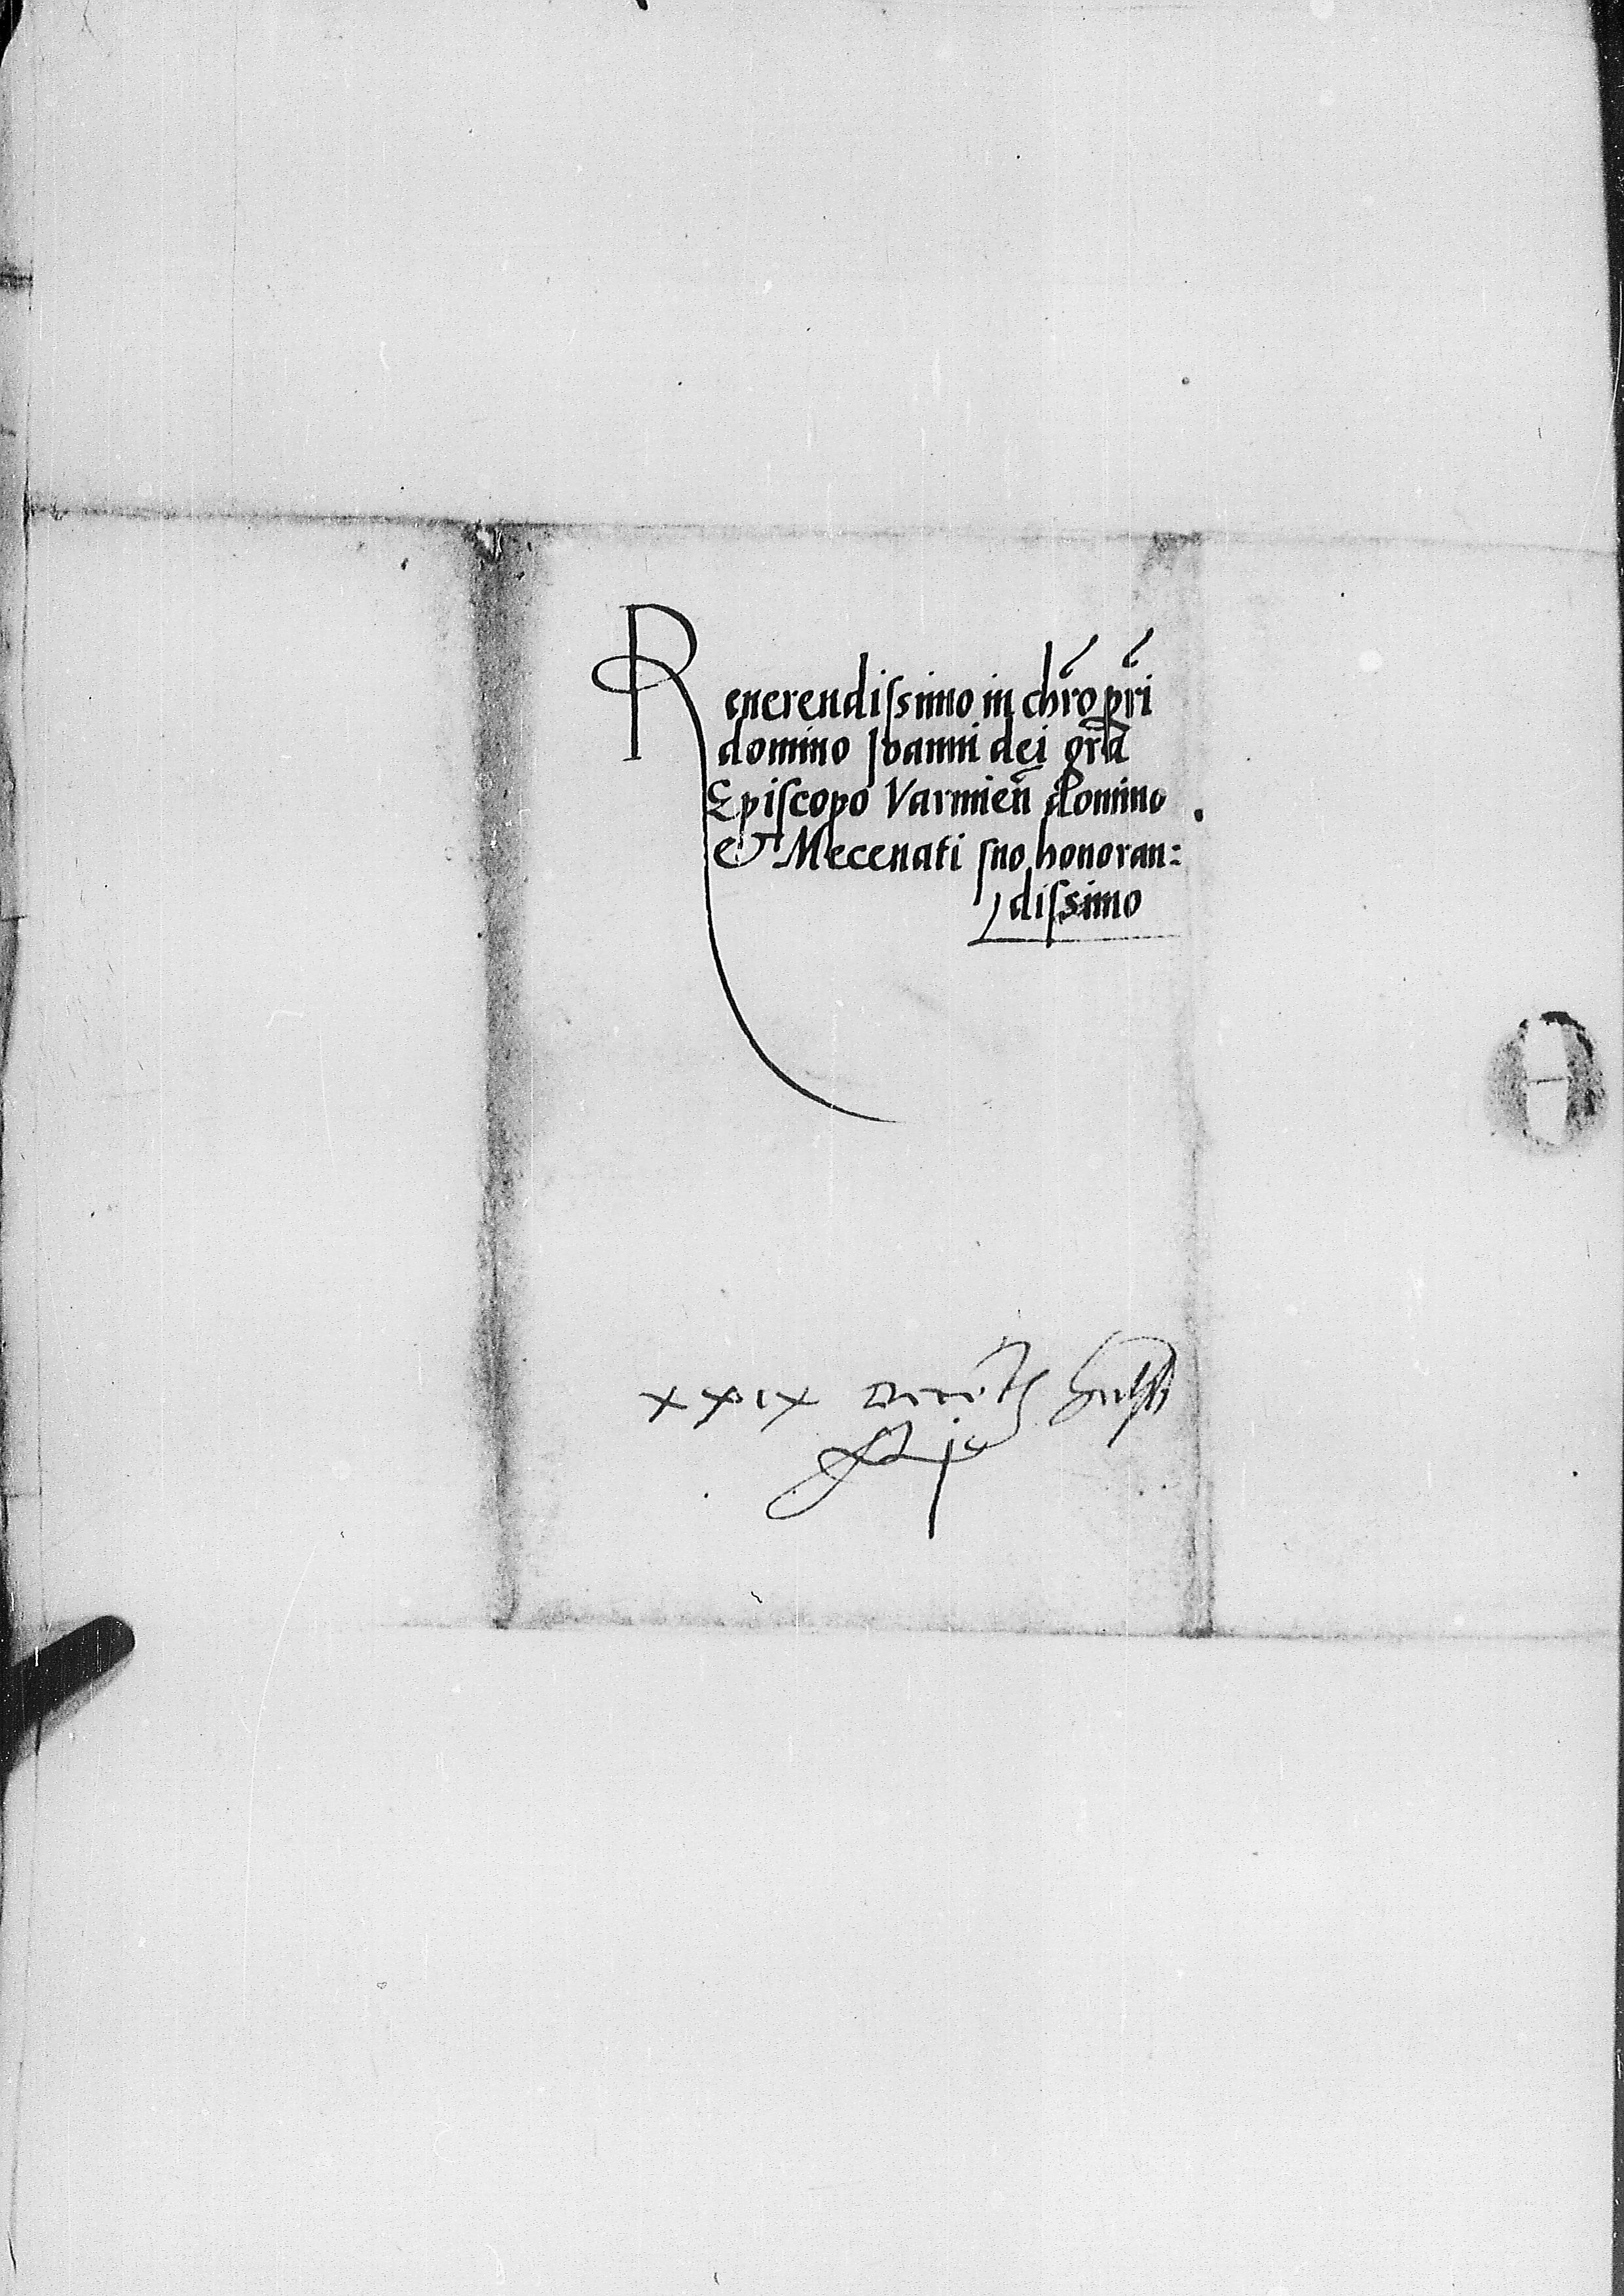 Reuerendissimo in chr̃o pr̃i
domino Ioanni dei gr̃a
Episcopo Varmień domino
& Mecenati suo honoran=
dissimo
xxix